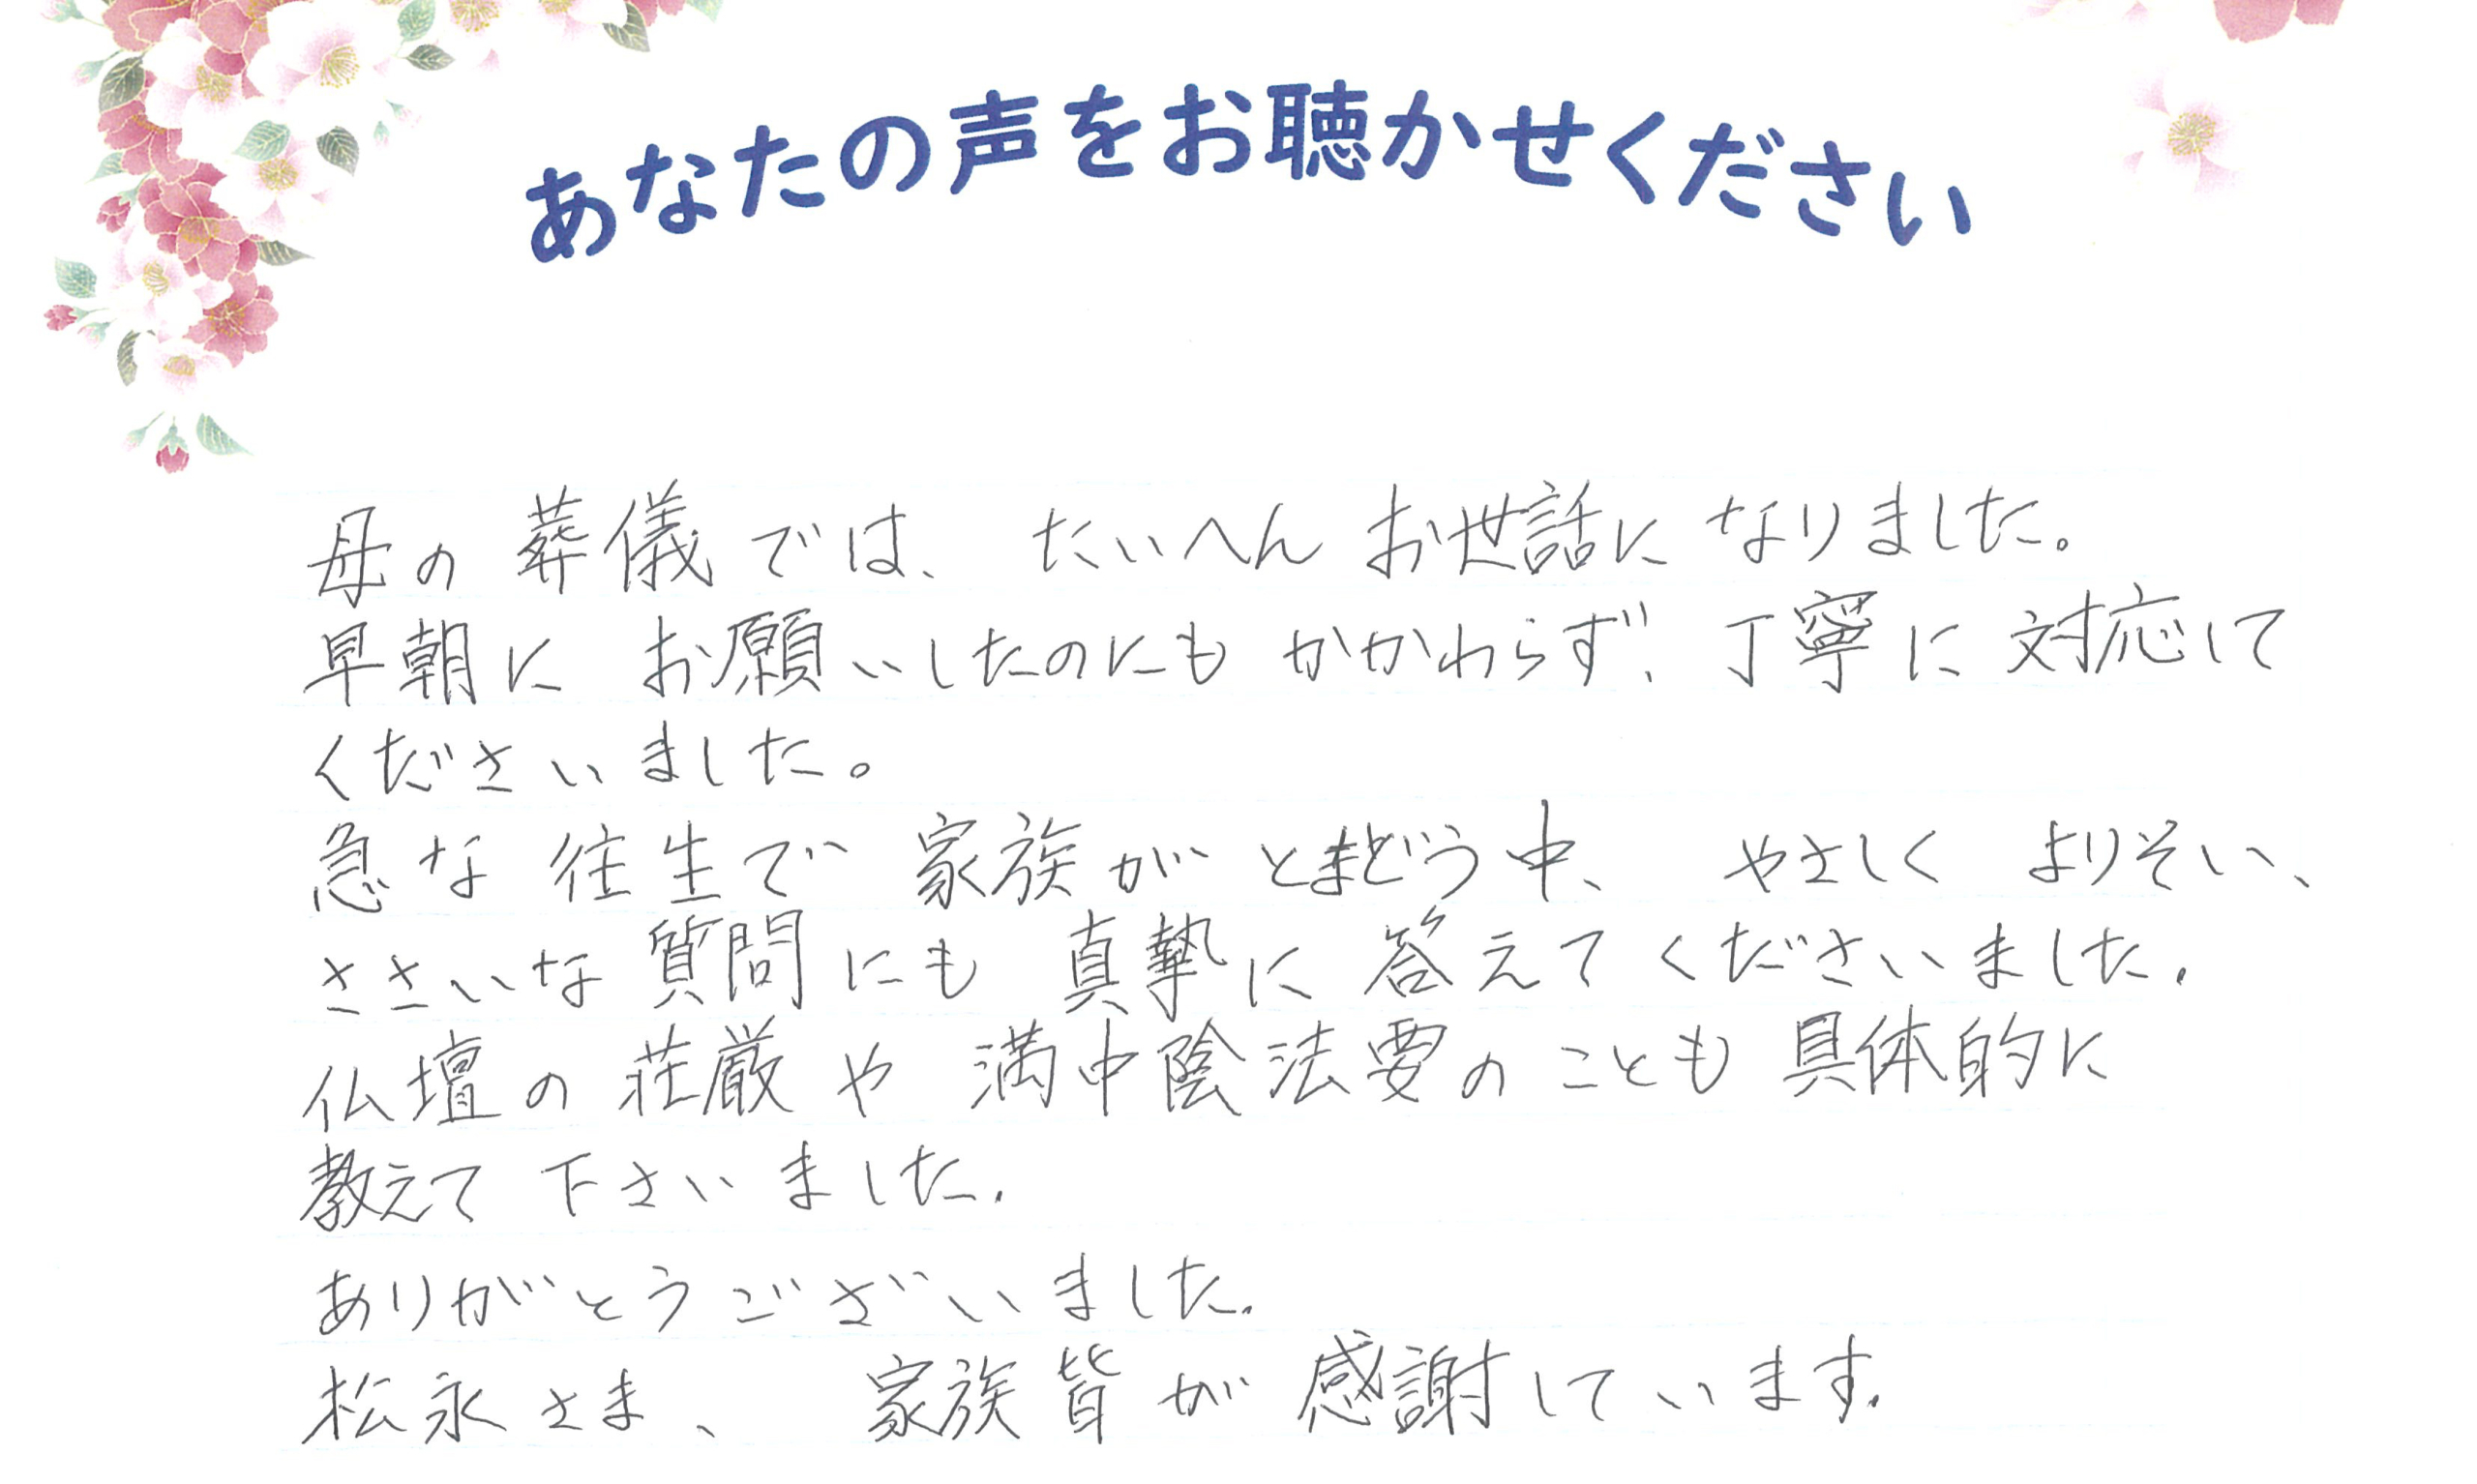 あなたの声をお聴かせください
母の葬儀では、たいへんお世話になりました。
早朝にお願いしたのにもかかわらず、丁寧に対応して
くださいました。
急な往生で家族がとまどう中、やさしくよりそい、
ささいな質問にも真摯に答えてくださいました.
仏壇の荘厳や満中陰法要のことも具体的に
教えて下さいました.
ありがとうございました.
松永さま、家族皆が感謝しています.